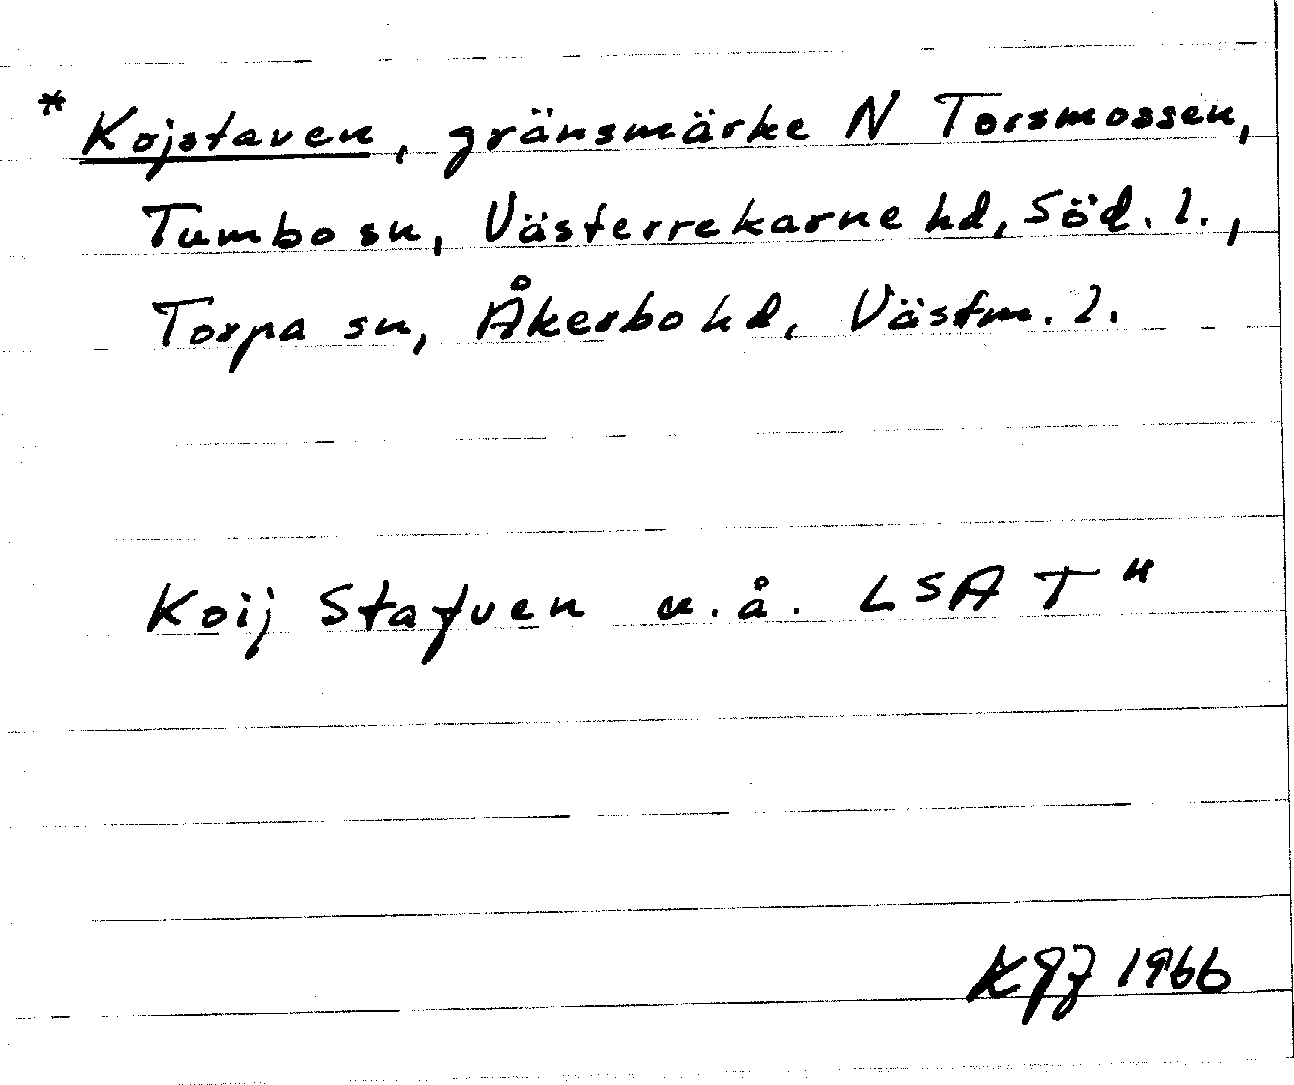 * Kojstaven, gränsmärke N Torsmossen,
Tumbo sn, Västerrekarne hd, Söd. l.,
Torpa sn, Åkerbo hd, Västm. l.
Koij Stafven u.å. LSA T"
KGJ 1966